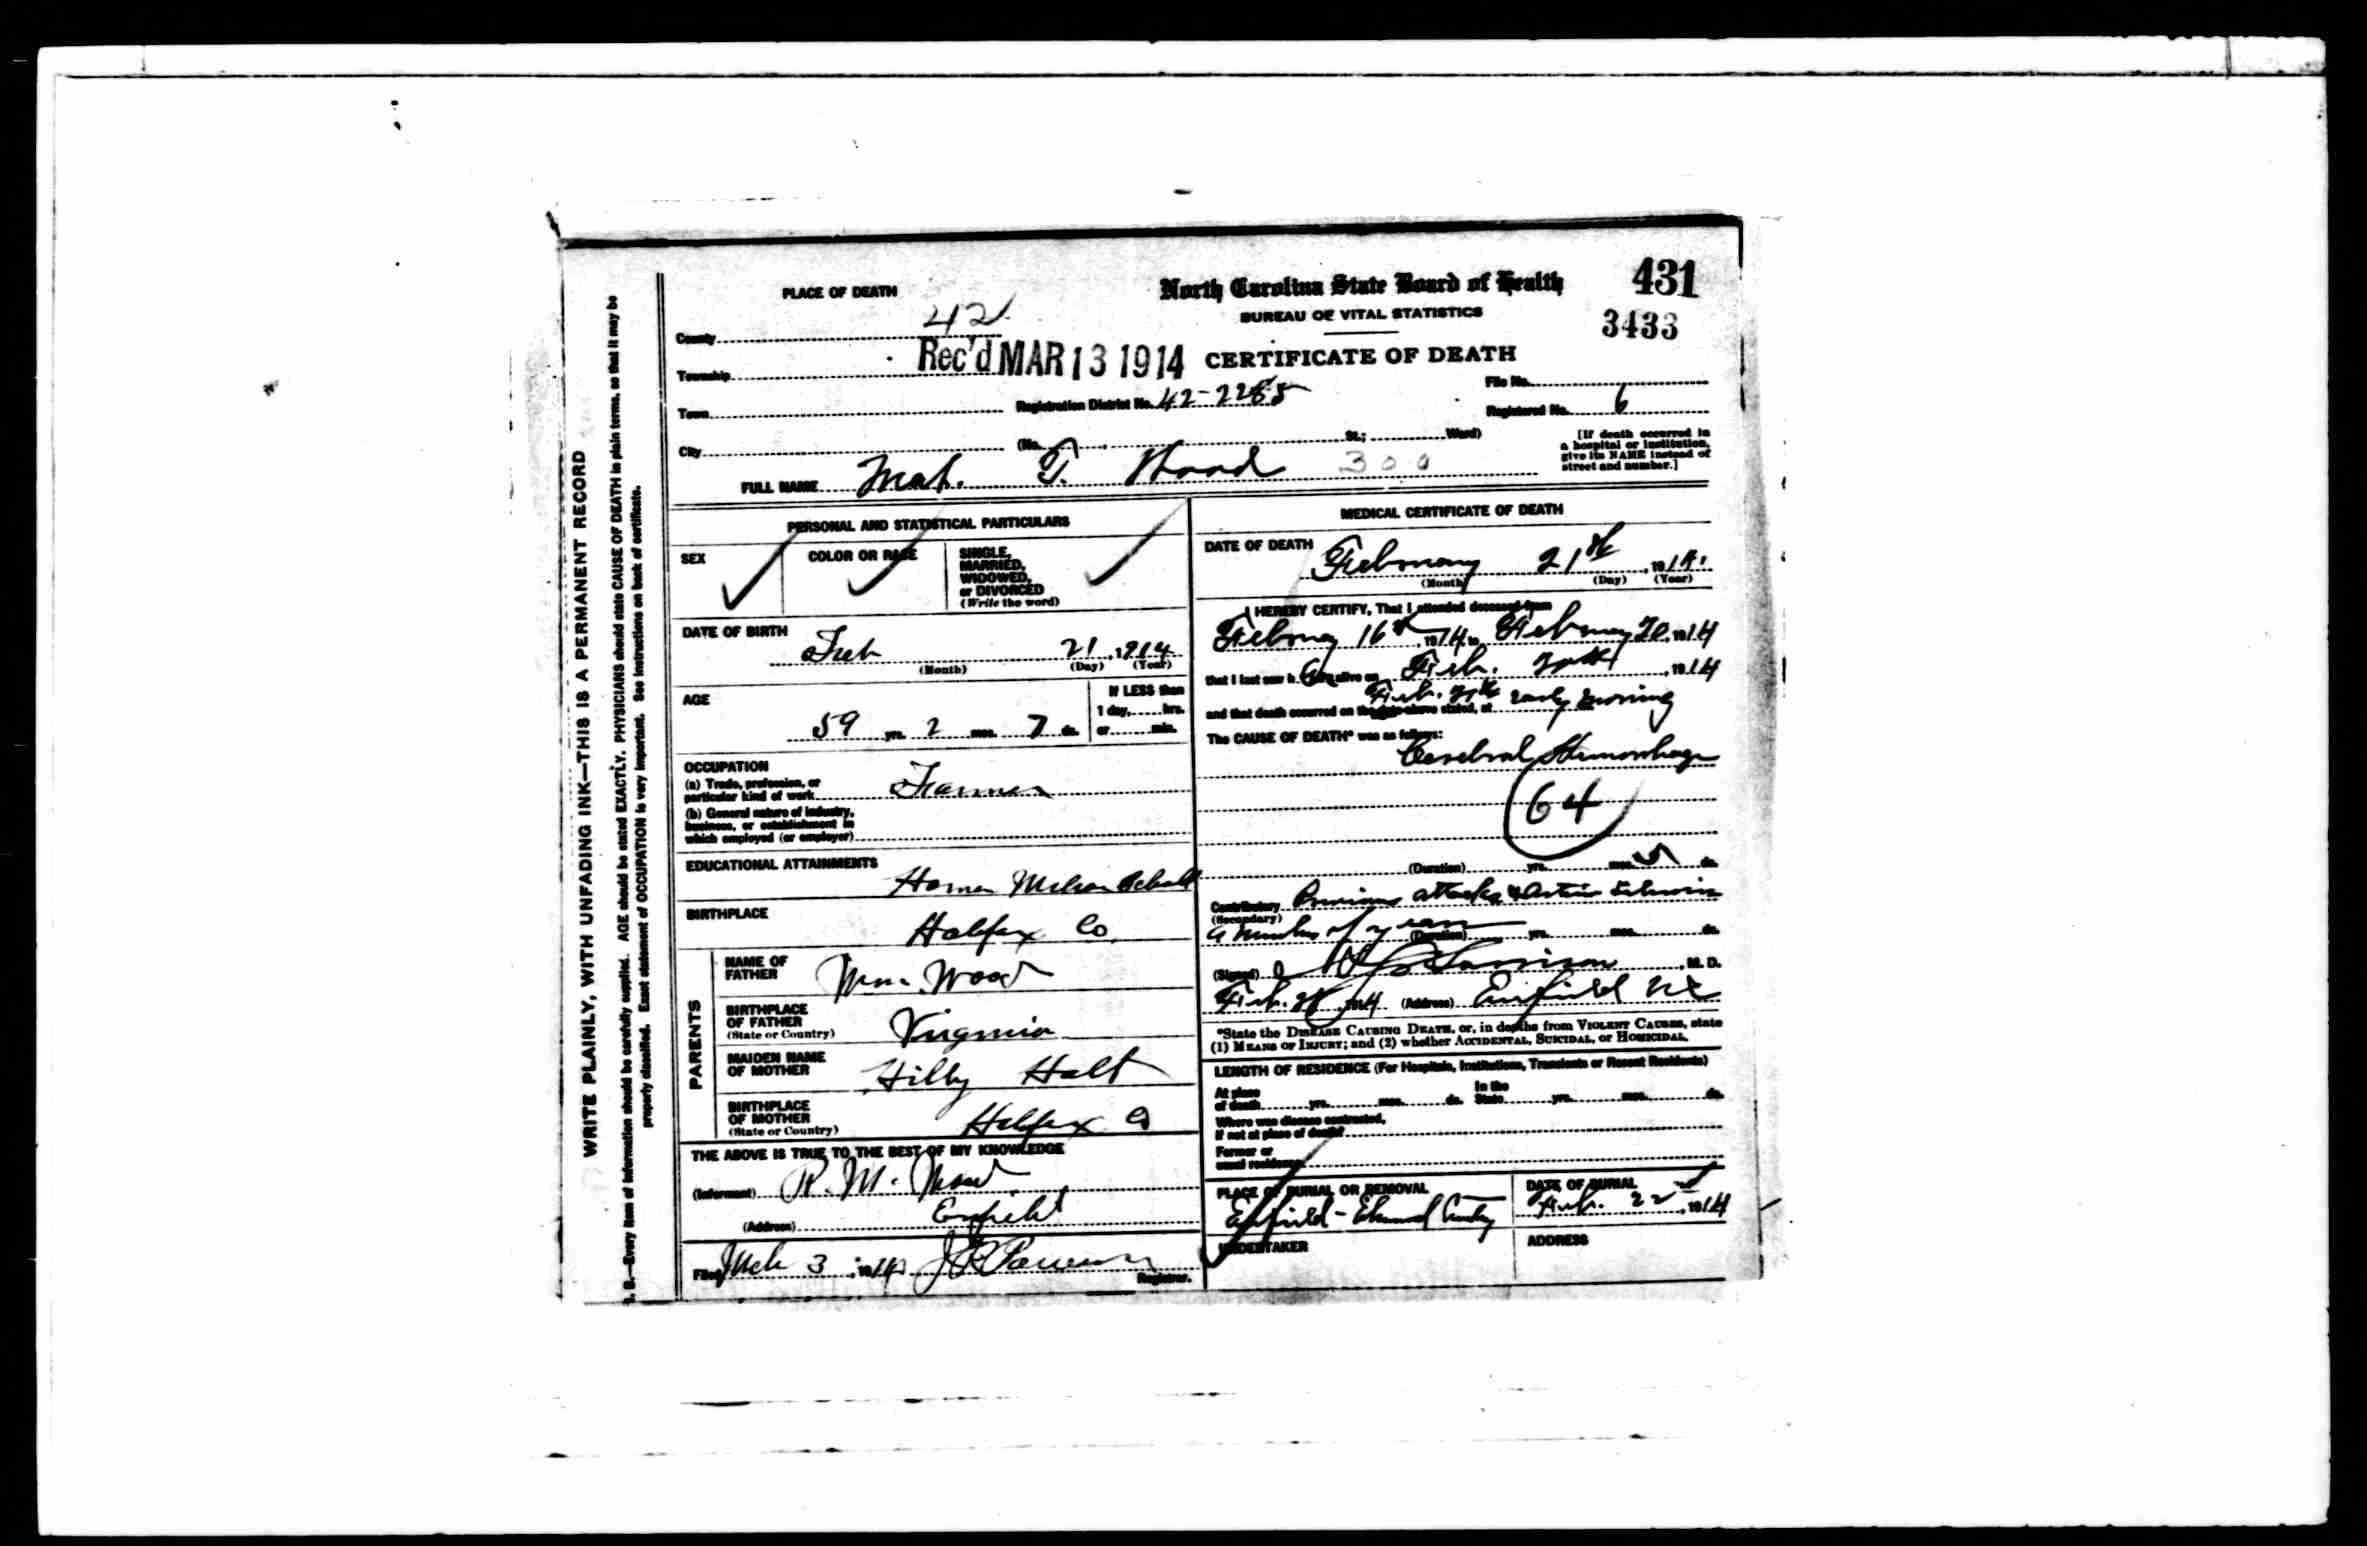 431
3433
North Carolina State Board of Health
BUREAU OF VITAL STATISTICS
CERTIFICATE OF DEATH
PLACE OF DEATH
County 42
Township
Rec'd MAR 13 1914
Town
Registration District No. 42-2285
File No.
Registered No. 6
City (No. St.; Ward)
[If death occurred in
a hospital or institution,
give its NAME instead of
street and number.]
FULL NAME T. Wood 300
PERSONAL AND STATISTICAL PARTICULARS
SEX
COLOR OR RACE
SINGLE,
MARRIED,
WIDOWED,
or DIVORCED
(Write the word)
DATE OF BIRTH
Feb 21, 1914
(Month) (Day) (Year)
AGE
59 yrs. 2 mos. 7 ds.
If LESS than
1 day, hrs.
or min.
OCCUPATION
(a) Trade, profession, or
particular kind of work Farmer
(b) General nature of industry,
business, or establishment in
which employed (or employer)
EDUCATIONAL ATTAINMENTS
Horner School
BIRTHPLACE
Halifax Co.
PARENTS
NAME OF
FATHER
Wm. Wood
BIRTHPLACE
OF FATHER
(State or Country)
Virginia
MAIDEN NAME
OF MOTHER
BIRTHPLACE
OF MOTHER
(State or Country)
Halifax Co
THE ABOVE IS TRUE TO THE BEST OF MY KNOWLEDGE
(Informant) R. M. Wood
(Address) Enfield
Filed Mch 3, 1914
Registrar.
MEDICAL CERTIFICATE OF DEATH
DATE OF DEATH
February 21st, 1914.
(Month) (Day) (Year)
I HEREBY CERTIFY, That I attended deceased from
February 16th, 1914, to February 20, 1914
that I last saw h alive on Feb. 20th, 1914
and that death occurred on the date above stated, at early morning
The CAUSE OF DEATH* was as follows:
Cerebral Hemorrhage
64
(Duration) yrs. mos. 5 ds.
Contributory Previous attacks
(Secondary)
a number of years
(Duration) yrs. mos. ds.
(Signed) Harrison, M. D.
1914 (Address) Enfield NC
*State the DISEASE CAUSING DEATH, or, in deaths from VIOLENT CAUSES, state
(1) MEANS OF INJURY; and (2) whether ACCIDENTAL, SUICIDAL, or HOMICIDAL.
LENGTH OF RESIDENCE (For Hospitals, Institutions, Transients or Recent Residents)
At place
of death yrs. mos. ds.
In the
State yrs. mos. ds.
Where was disease contracted,
if not at place of death?
Former or
usual residence
PLACE OF BURIAL OR REMOVAL
Enfield - Elmwood
DATE OF BURIAL
Feb. 22, 1914
UNDERTAKER
ADDRESS
WRITE PLAINLY, WITH UNFADING INK—THIS IS A PERMANENT RECORD
B.—Every item of information should be carefully supplied. AGE should be stated EXACTLY. PHYSICIANS should state CAUSE OF DEATH in plain terms, so that it may be
properly classified. Exact statement of OCCUPATION is very important. See instructions on back of certificate.